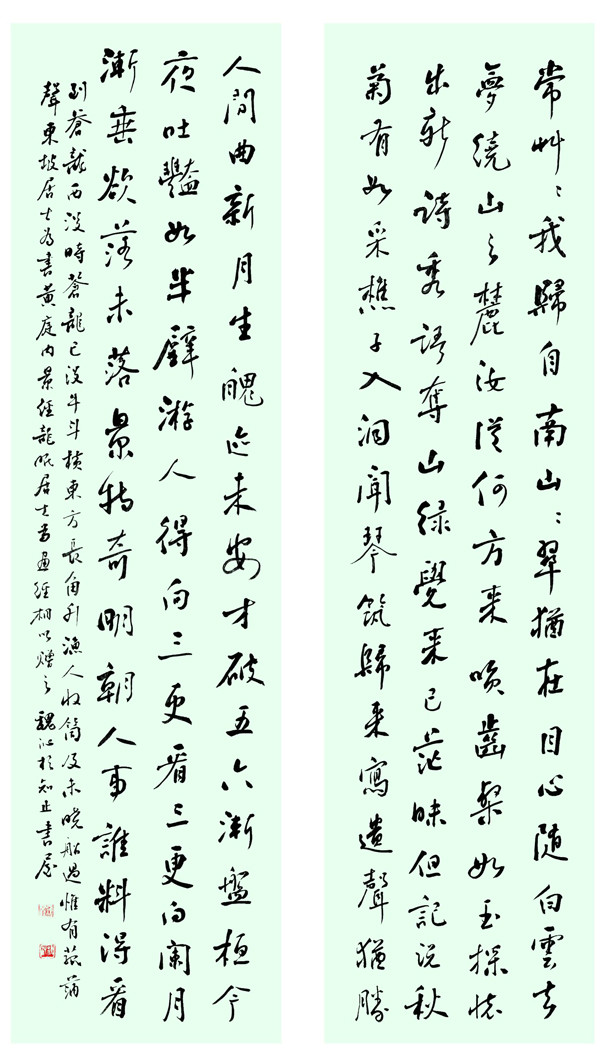 常艸〻我歸自南山〻翠猶在目心隨白雲去
夢繞山之麓汝從何方來咲齒粲如玉探懷
出新詩秀語奪山綠覺來已茫昧但記說秋
菊有如采樵子入洞聞琴筑歸來寫遺聲猶勝
人間曲新月生魄迹未安才破五六漸盤桓今
夜吐豔如半璧游人得向三更看三更向闌月
漸垂欲落未落景特奇明朝人事誰料得看
到蒼龍西沒時蒼龍已沒牛斗橫東方長角升漁人收筒及未曉船過惟有菰蒲
聲東坡居士為書黃庭內景經龍眠居士為畫經相以贈之 魏沁於知止書屋